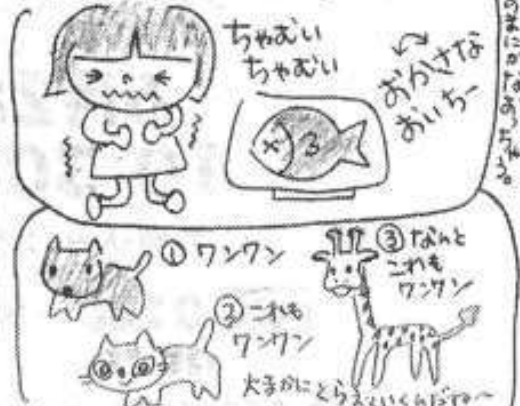 ちゃむい
ちゃむい
おかさな
おいちー
① ワンワン
② これも
ワンワン
③ なんと
これも
ワンワン
大まかにとらえていくんだね〜